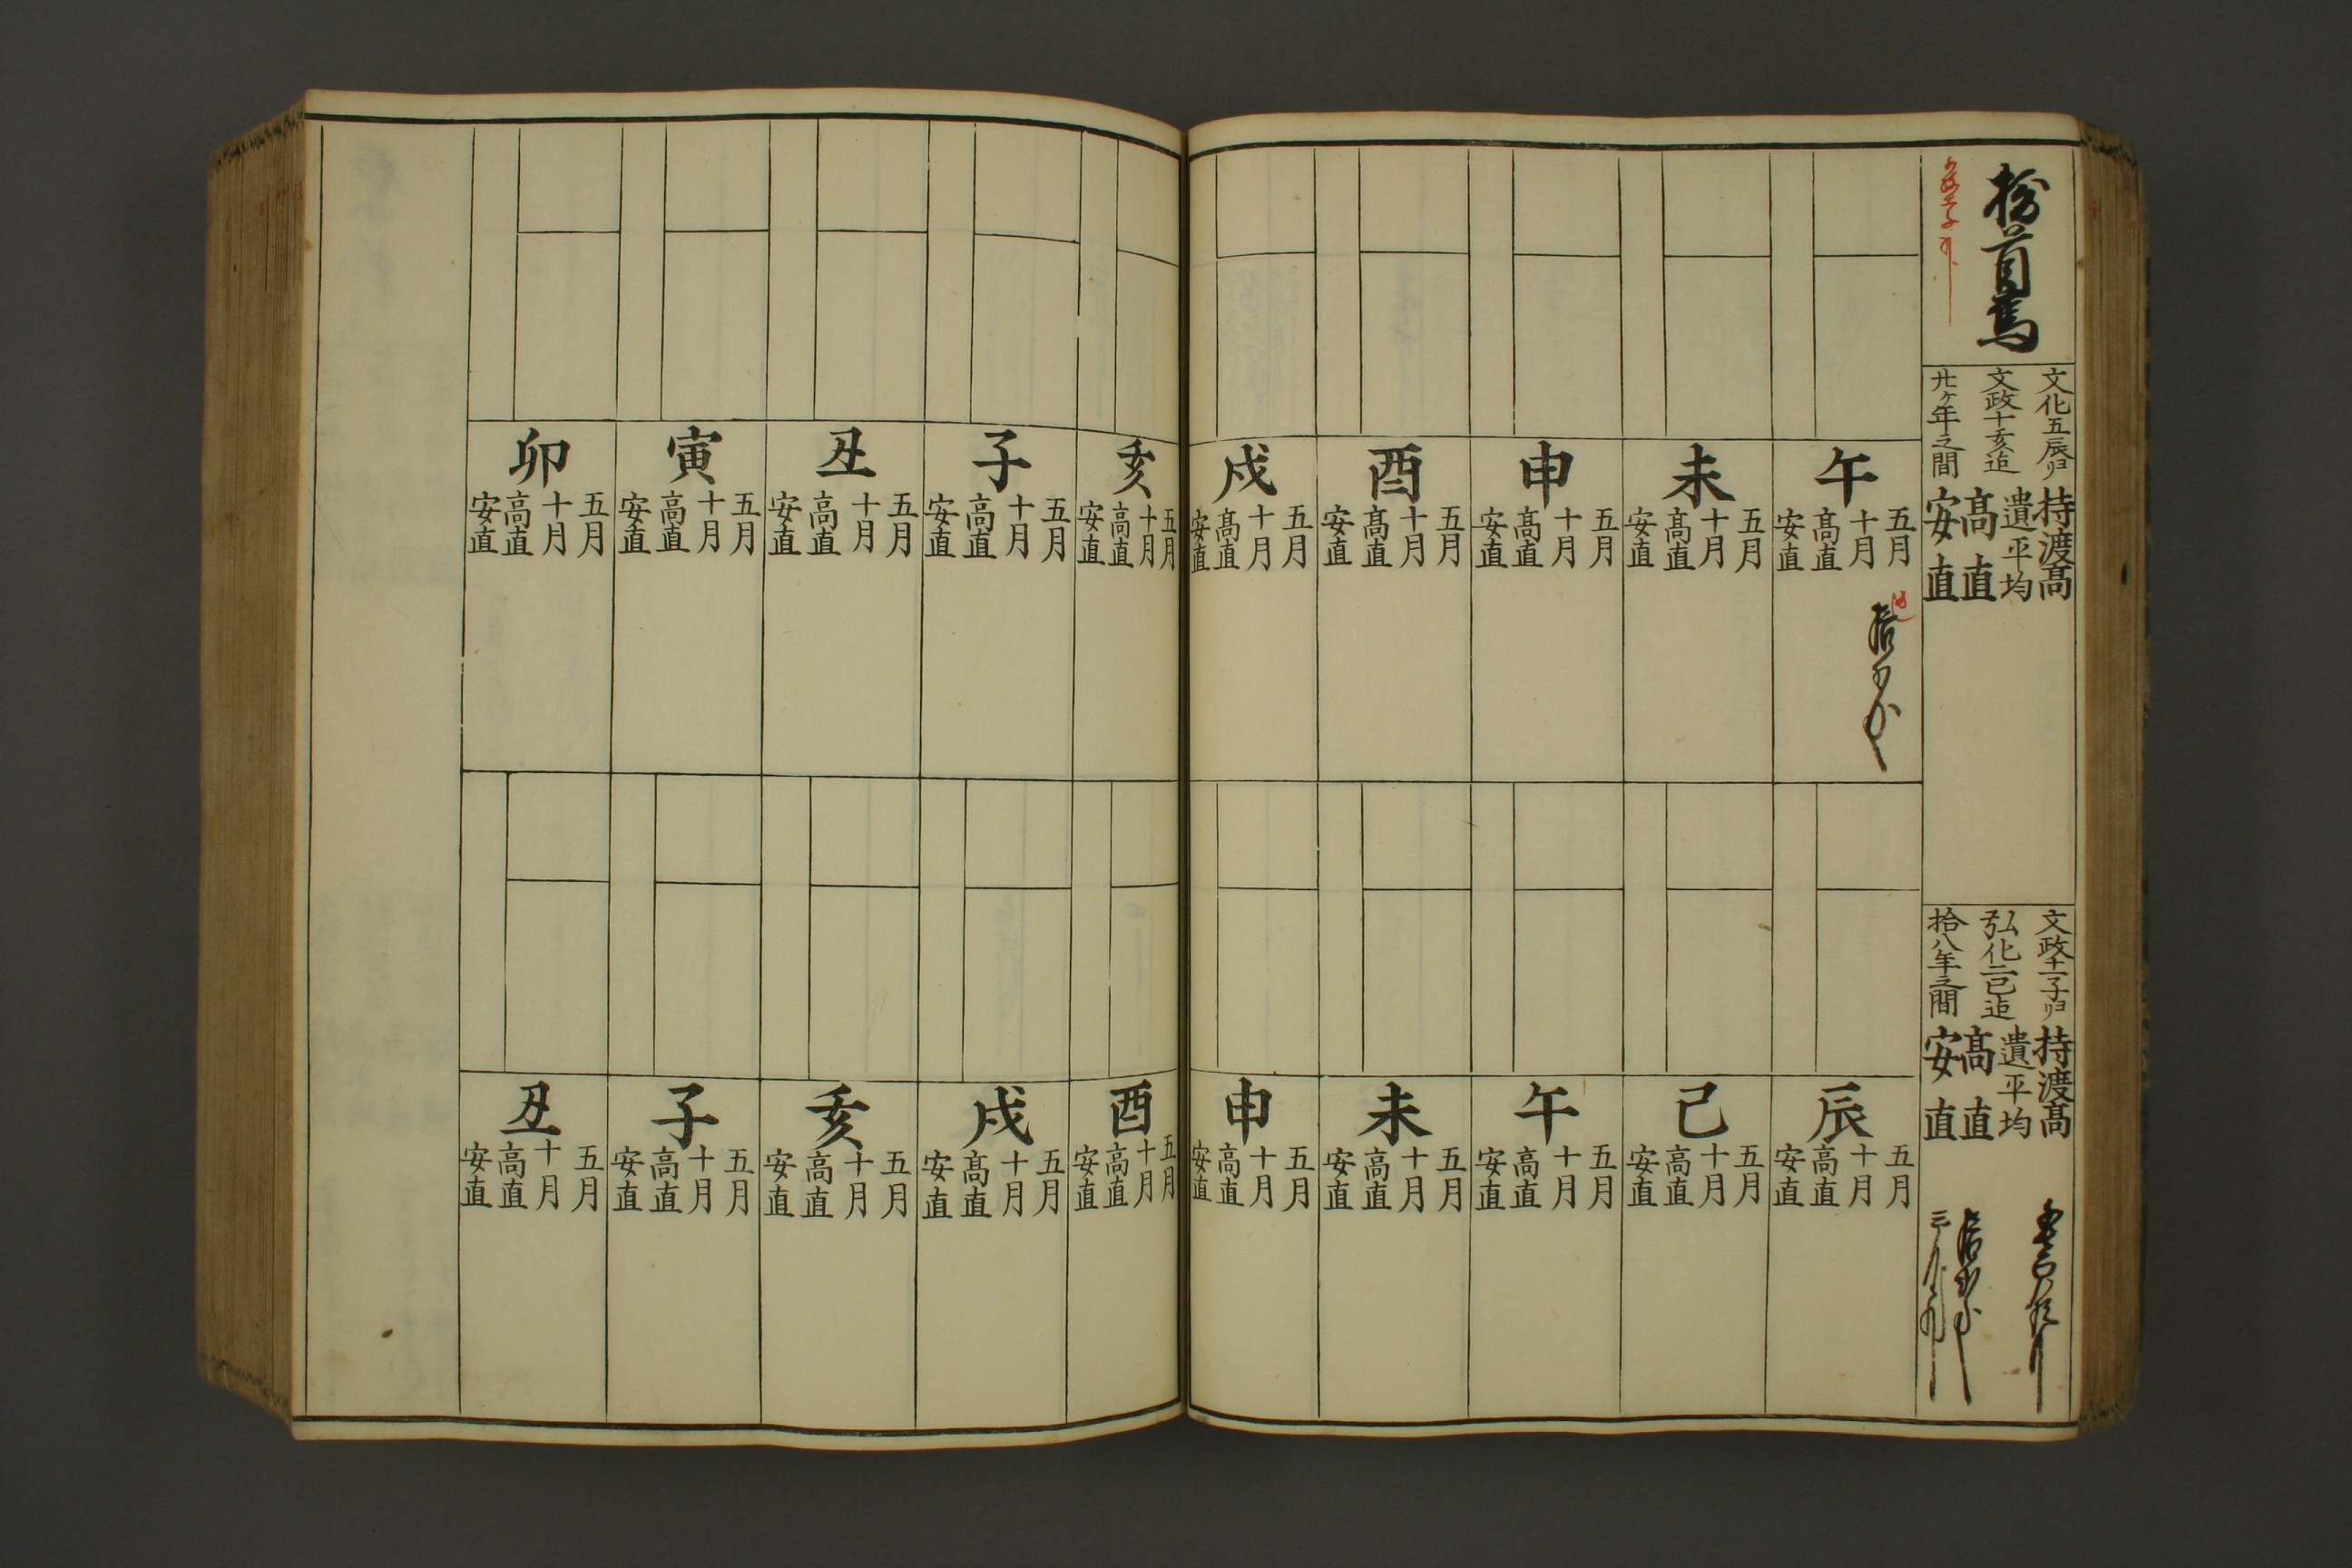 首烏
文化五辰ゟ
文政十亥迠
廿ヶ年之間
持渡髙
遺平均
髙直
安直
文政十一子ゟ
弘化二巳迠
拾八年之間
持渡髙
遺平均
髙直
安直
午
五月
十月
髙直
安直
未
五月
十月
髙直
安直
申
五月
十月
髙直
安直
酉
五月
十月
髙直
安直
戌
五月
十月
髙直
安直
亥
五月
十月
高直
安直
子
五月
十月
高直
安直
丑
五月
十月
高直
安直
寅
五月
十月
高直
安直
卯
五月
十月
高直
安直
辰
五月
十月
高直
安直
巳
五月
十月
高直
安直
午
五月
十月
高直
安直
未
五月
十月
高直
安直
申
五月
十月
高直
安直
酉
五月
十月
高直
安直
戌
五月
十月
髙直
安直
亥
五月
十月
高直
安直
子
五月
十月
高直
安直
丑
五月
十月
高直
安直